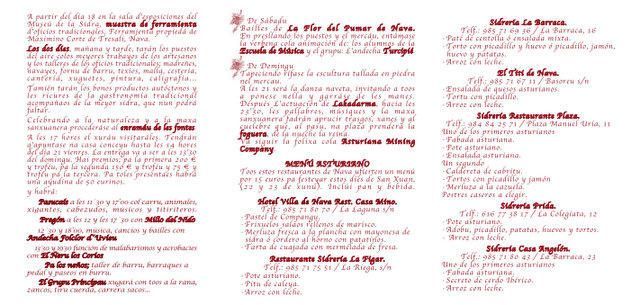 A partir del día 18 en la sala d'esposiciones del
Museú de la Sidra, muestra de ferramienta
d'oficios tradicionales. Ferramienta propiedá de
Máximino Corte de Tresali, Nava.
Los dos díes, mañana y tarde, tarán los puestos
del aire coles meyores trabayos de los artesanos
y los talleres de los oficios tradicionales; madreñes,
navayes, forno de barru, texíos, malla, cestería,
cantería, xuguetes, pintura, caligrafía...
Tamién tarán los bonos productos autóctonos y
les ricures de la gastronomía tradicional
acompañaos de la meyor sidra, que nun podrá
faltar.
Celebrando a la naturaleza y a la maxa
sanxuanera procederáse al enrame de les fontes
A les 17 hores el xuráu visitarádes. Tendrán
d'apuntase na casa conceyu hasta les 14 hores
del día 21 vienres. La entrega va a ser a les 13'30
del domingu. Hai premios; pa la primera 200 €
y trofeu, pa la segunda 150 € y trofeu y 75 € y
trofeu pa la tercera. Pa toles presentaes habrá
una ayudina de 50 eurinos.
y habrá:
Pasucais a les 11'30 y 17'00 col carru, animales,
xigantes, cabezudos, músicos y titiriteros.
Pregón a les 12 y les 17'30 con Milio del Nido
12'30 y 18'00, música, cancios y bailles con
Andecha Folclor d'Uviéu
13'30 y 19'30 función de malabarismos y acrobacies
con El Neru los Corios
Pa los neños; taller de barru, barraques a
pedal y paseos en burru.
El Grupu Principau xugará con toos a la rana,
zancos, tiru cuerda, carrera sacos...
De Sábadu
Bailles de La Flor del Pumar de Nava.
En presllando los puestos y el mercáu, entámase
la verbena cola animación de: los alumnos de la
Escuela de Música y el grupu L'andecha Turcipié
De Domingu
Tapeciendo rífase la escultura tallada en piedra
nel mercáu.
A les 21 será la danza navita, invitando a toos
a ponese nella y garráse de les manes.
Después L'actuación de Lakadarma, hasta les
23'30, les pallabres, músiques y la maxa
sanxuanera fadrán aprucir trasgos, xanes y al
culebre que, al pasu, na plaza prenderá la
foguera, de la nueche la reina
Va siguir la folixa cola Asturiana Mining
Company
MENÚ ASTURIANO
Toos estos restaurantes de Nava ufierten un menú
por 15 euros pa festeyar estos díes de San Xuan,
(22 y 23 de xunu). Incluí pan y bebida.
Hotel Villa de Nava Rest. Casa Mino.
Telf.: 985 71 80 70 / La Laguna s/n
- Pastel de Compangu.
- Frixuelos salaos rellenos de marisco.
- Merluza fresca a la plancha con mayonesa de
sidra ó cordero al horno con patatinos.
- Tarta de cuajada con mermelada de fresa.
Restaurante Sidrería La Figar.
Telf.: 985 71 75 51 / La Riega, s/n
- Pote asturiano.
- Pitu de caleya.
- Arroz con leche.
Sidrería La Barraca.
Telf.: 985 71 69 36 / La Barraca, 16
- Paté de centolla ó ensalada mixta.
- Torto con picadillo y huevo ó picadillo, jamón,
huevo y patatos.
- Arroz con leche.
El Titi de Nava.
Telf.: 985 71 67 11 / Basoreu s/n
- Ensalada de quesos asturianos.
- Torto con picadillo.
- Arroz con leche.
Sidrería Restaurante Plaza.
Telf.: 984 84 25 71 / Plaza Manuel Uría, 11
Uno de los primeros asturianos
- Fabada asturiana.
- Pote asturiano.
- Ensalada asturiana.
Un segundo
- Caldereta de cabritu.
- Tortos con picadillo y jamón
- Merluza a la cazuela.
Postres caseros a elegir.
Sidrería Prida.
Telf.: 616 77 38 17 / La Colegiata, 12
- Pote asturiano.
- Adobu, picadillo, patatas, huevos y tortos.
- Arroz con leche.
Sidrería Casa Angelón.
Telf.: 985 71 80 43 / La Barraca, 23
Uno de los primeros asturianos
- Fabada asturiana.
- Secreto de cerdo Ibérico.
- Arroz con leche.